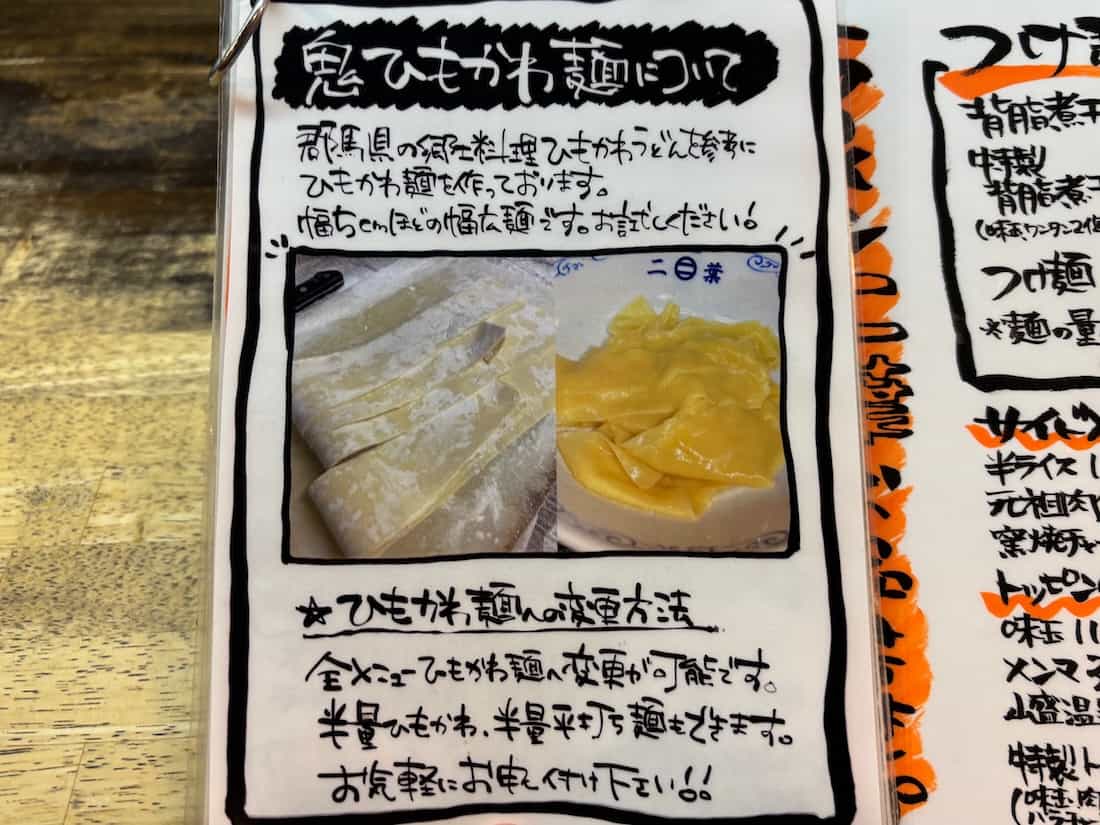 鬼ひもかわ麺について
群馬県の郷土料理ひもかわうどんを参考に
ひもかわ麺を作っております。
幅5cmほどの幅広麺です。お試しください!
二〇葉
☆ひもかわ麺への変更方法
全メニューひもかわ麺へ変更が可能です。
半量ひもかわ、半量平打ち麺もできます。
お気軽にお申し付け下さい!!
つけ
背脂煮干
特製
背脂煮干
(味玉、ワンタン2個
つけ麺
※麺の量
サイドメ
半ライス
元祖肉
窯焼チャ
トッピング
味玉
メンマ
山盛
特製ト
(味玉、肉